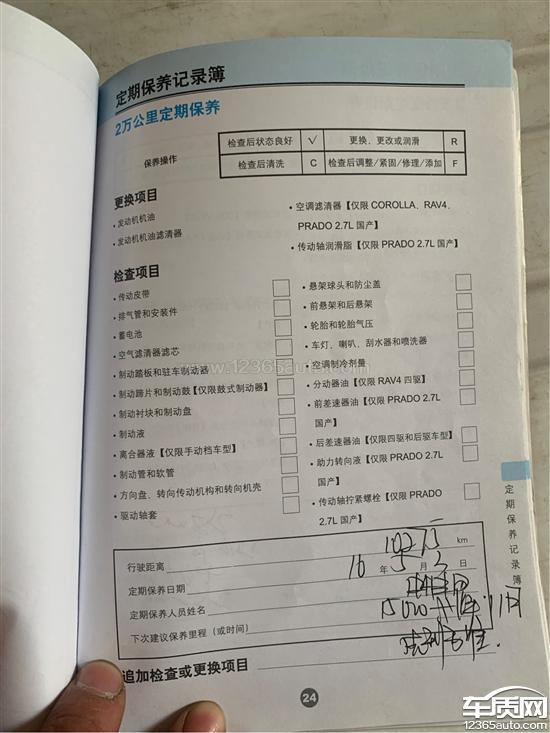 定期保养记录簿
2万公里定期保养
保养操作
检查后状态良好 √ 更换、更改或润滑 R
检查后清洗 C 检查后调整/紧固/修理/添加 F
更换项目
·发动机机油
·发动机机油滤清器
·空调滤清器【仅限 COROLLA、RAV4、
PRADO 2.7L 国产】
·传动轴润滑脂【仅限 PRADO 2.7L 国产】
检查项目
·传动皮带
·排气管和安装件
·蓄电池
·空气滤清器滤芯
·制动踏板和驻车制动器
·制动蹄片和制动鼓【仅限鼓式制动器】
·制动衬块和制动盘
·制动液
·离合器液【仅限手动档车型】
·制动管和软管
·方向盘、转向传动机构和转向机壳
·驱动轴套
·悬架球头和防尘盖
·前悬架和后悬架
·轮胎和轮胎气压
·车灯、喇叭、刮水器和喷洗器
·空调制冷剂量
·分动器油【仅限 RAV4 四驱】
·前差速器油【仅限 PRADO 2.7L
国产】
·后差速器油【仅限四驱和后驱车型】
·助力转向液【仅限 PRADO 2.7L
国产】
·传动轴拧紧螺栓【仅限 PRADO
2.7L 国产】
行驶距离 km
定期保养日期 16 年 5 月 3 日
定期保养人员姓名
下次建议保养里程（或时间）
追加检查或更换项目
24
定期保养记录簿
www.12365auto.com
车质网
12365auto.com